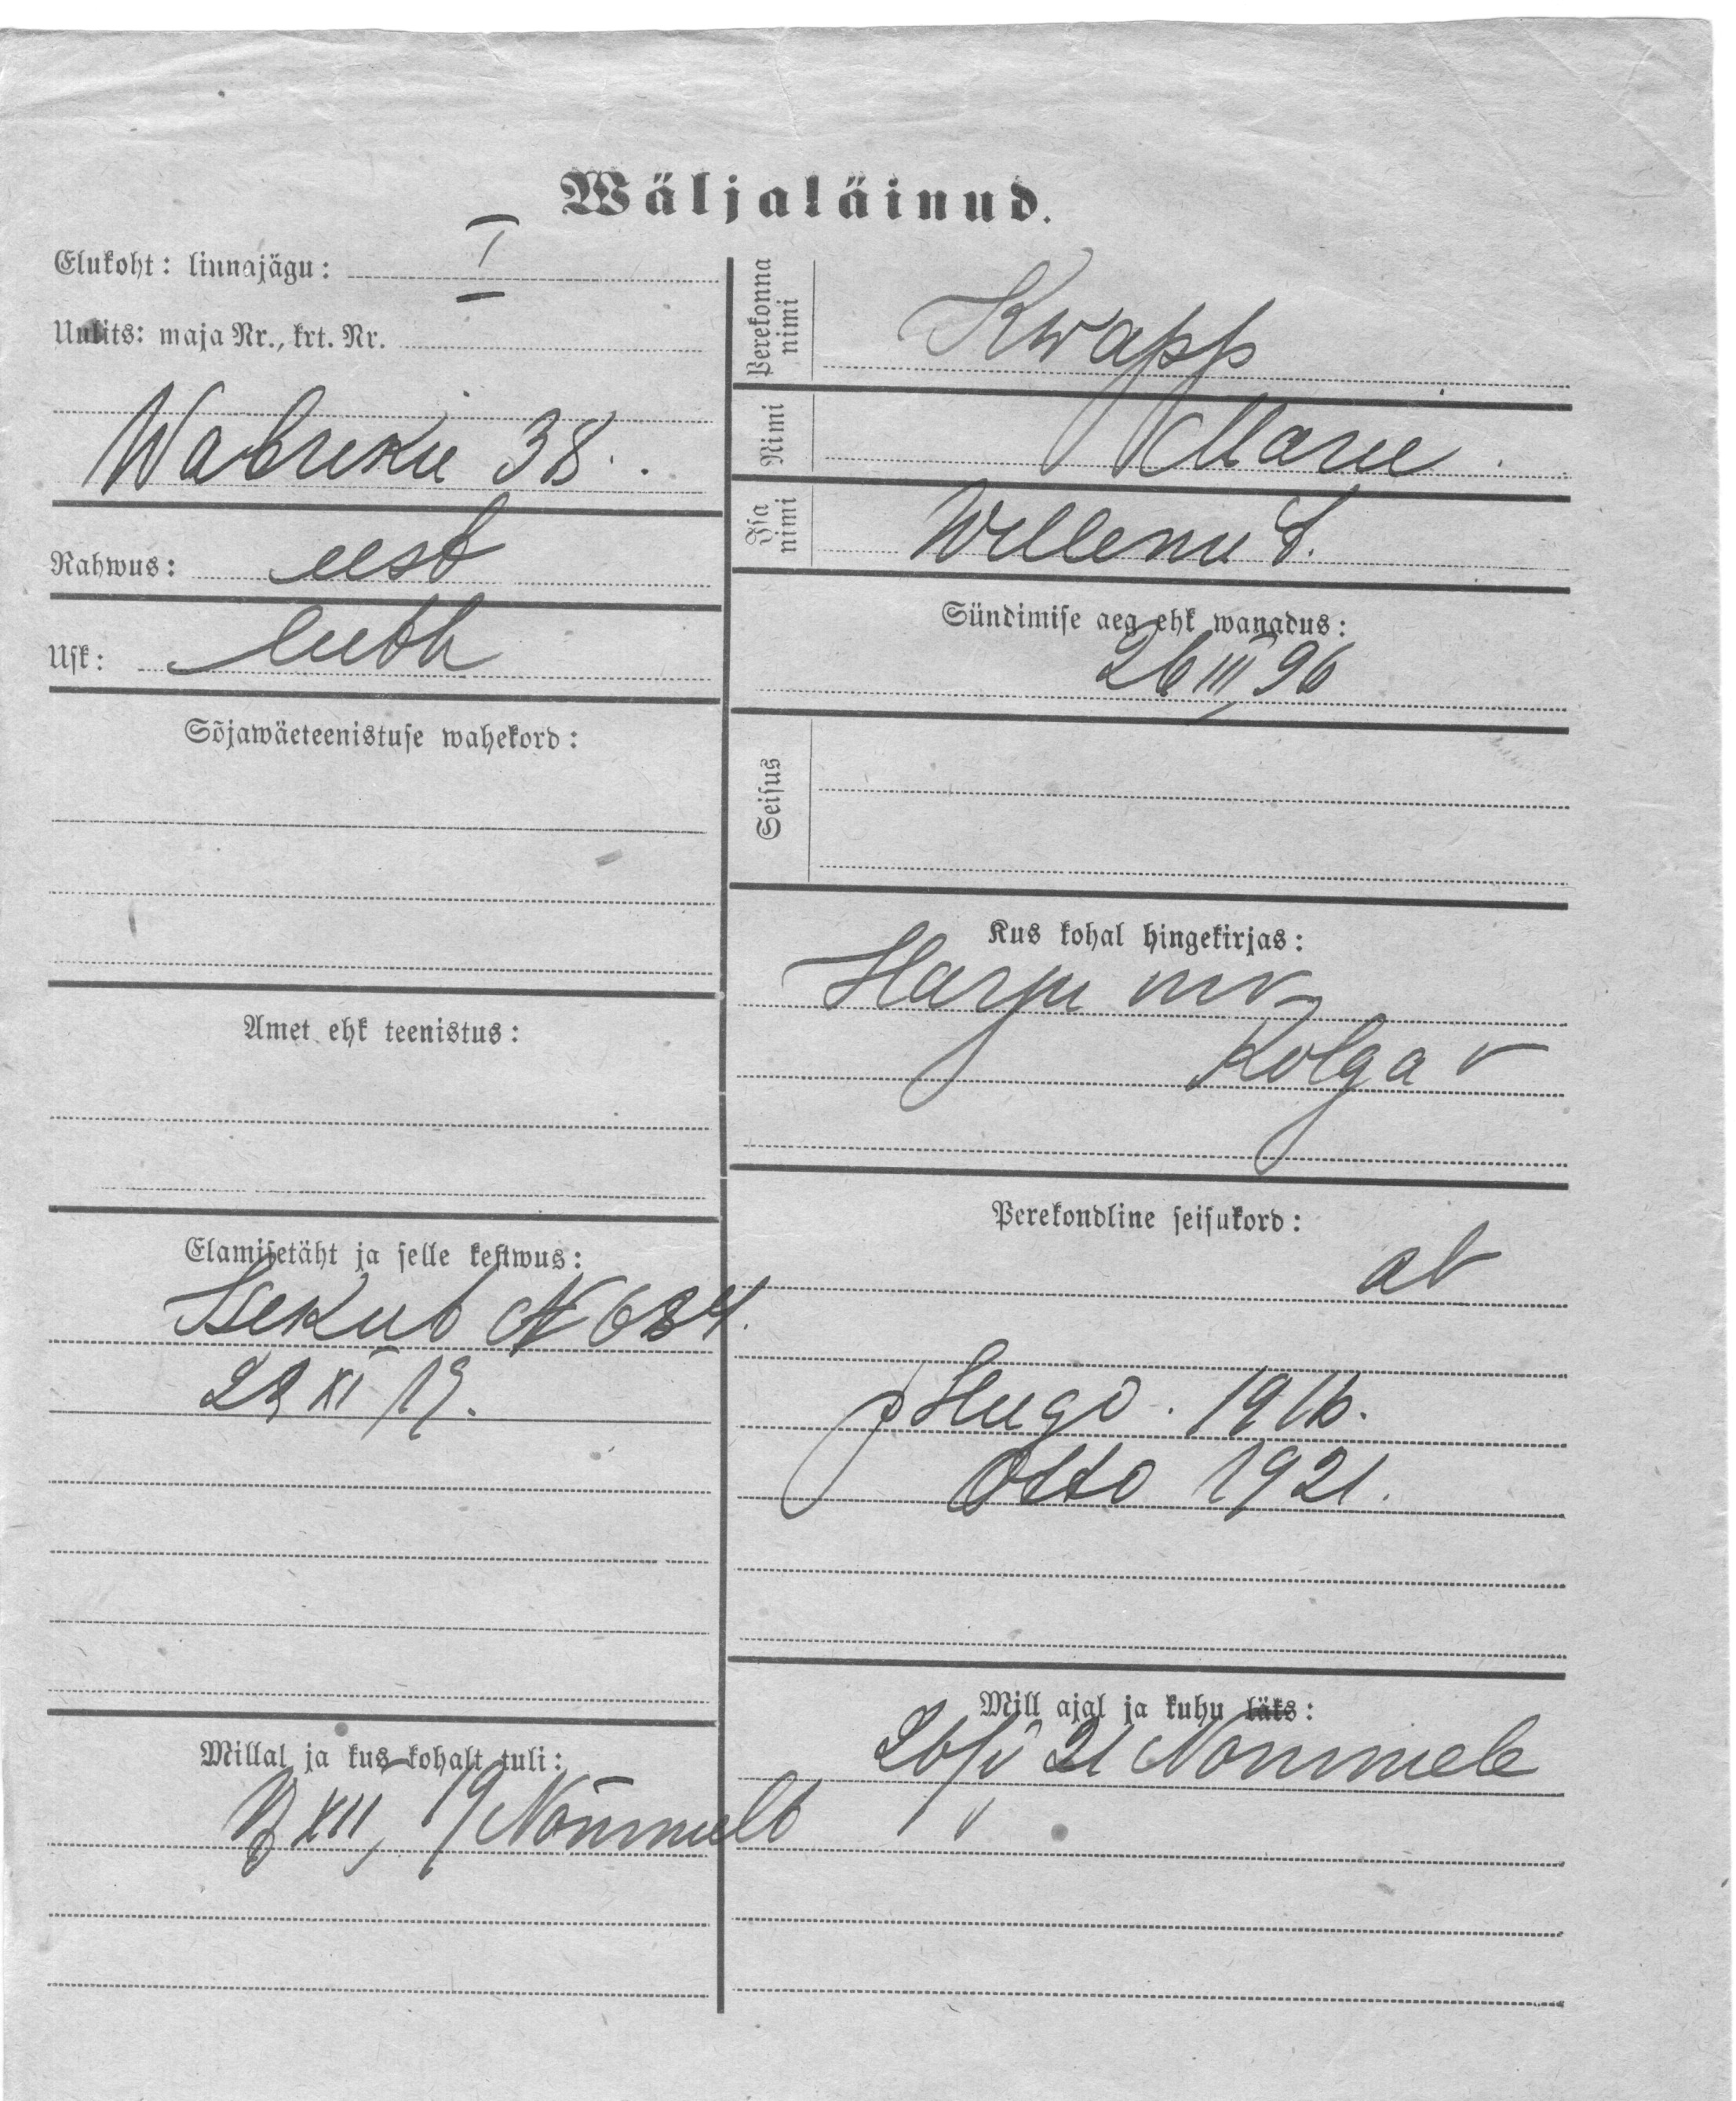 Wäljaläinud.
Elukoht: linnajägu: I
Uulits: maja Nr., krt. Nr.
Wabriku 38.
Rahwus: eest
Usk: luth
Sõjawäeteenistuse wahekord:
Amet ehk teenistus:
Elamisetäht ja selle kestwus:
Isekut N 684.
XI 19.
Millal ja kus kohalt tuli:
XII, 19 Nõmmelt
Perekonna nimi Kwapp
Nimi Marie
Isa nimi Willemi t.
Sündimise aeg ehk wanadus:
26 III 96
Seisus
Kus kohal hingekirjas:
Harju mk
Kolga v
Perekondline seisukord:
ab
p Hugo. 1916.
Otto 1921.
Mill ajal ja kuhu läks:
26/V 21 Nõmmele